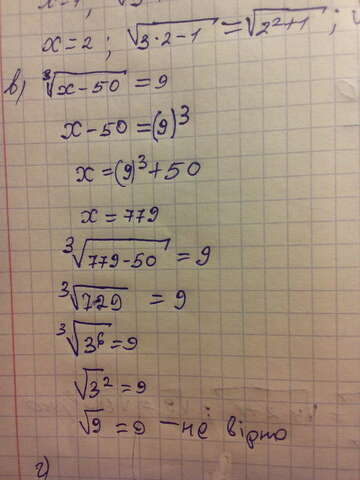 x = 2 ; √3·2-1 = √2²+1 ;
в) ³√x-50 = 9
x-50 = (9)³
x = (9)³+50
x = 779
³√779-50 = 9
³√729 = 9
³√3⁶ = 9
√3² = 9
√9 = 9 — не вірно
г)